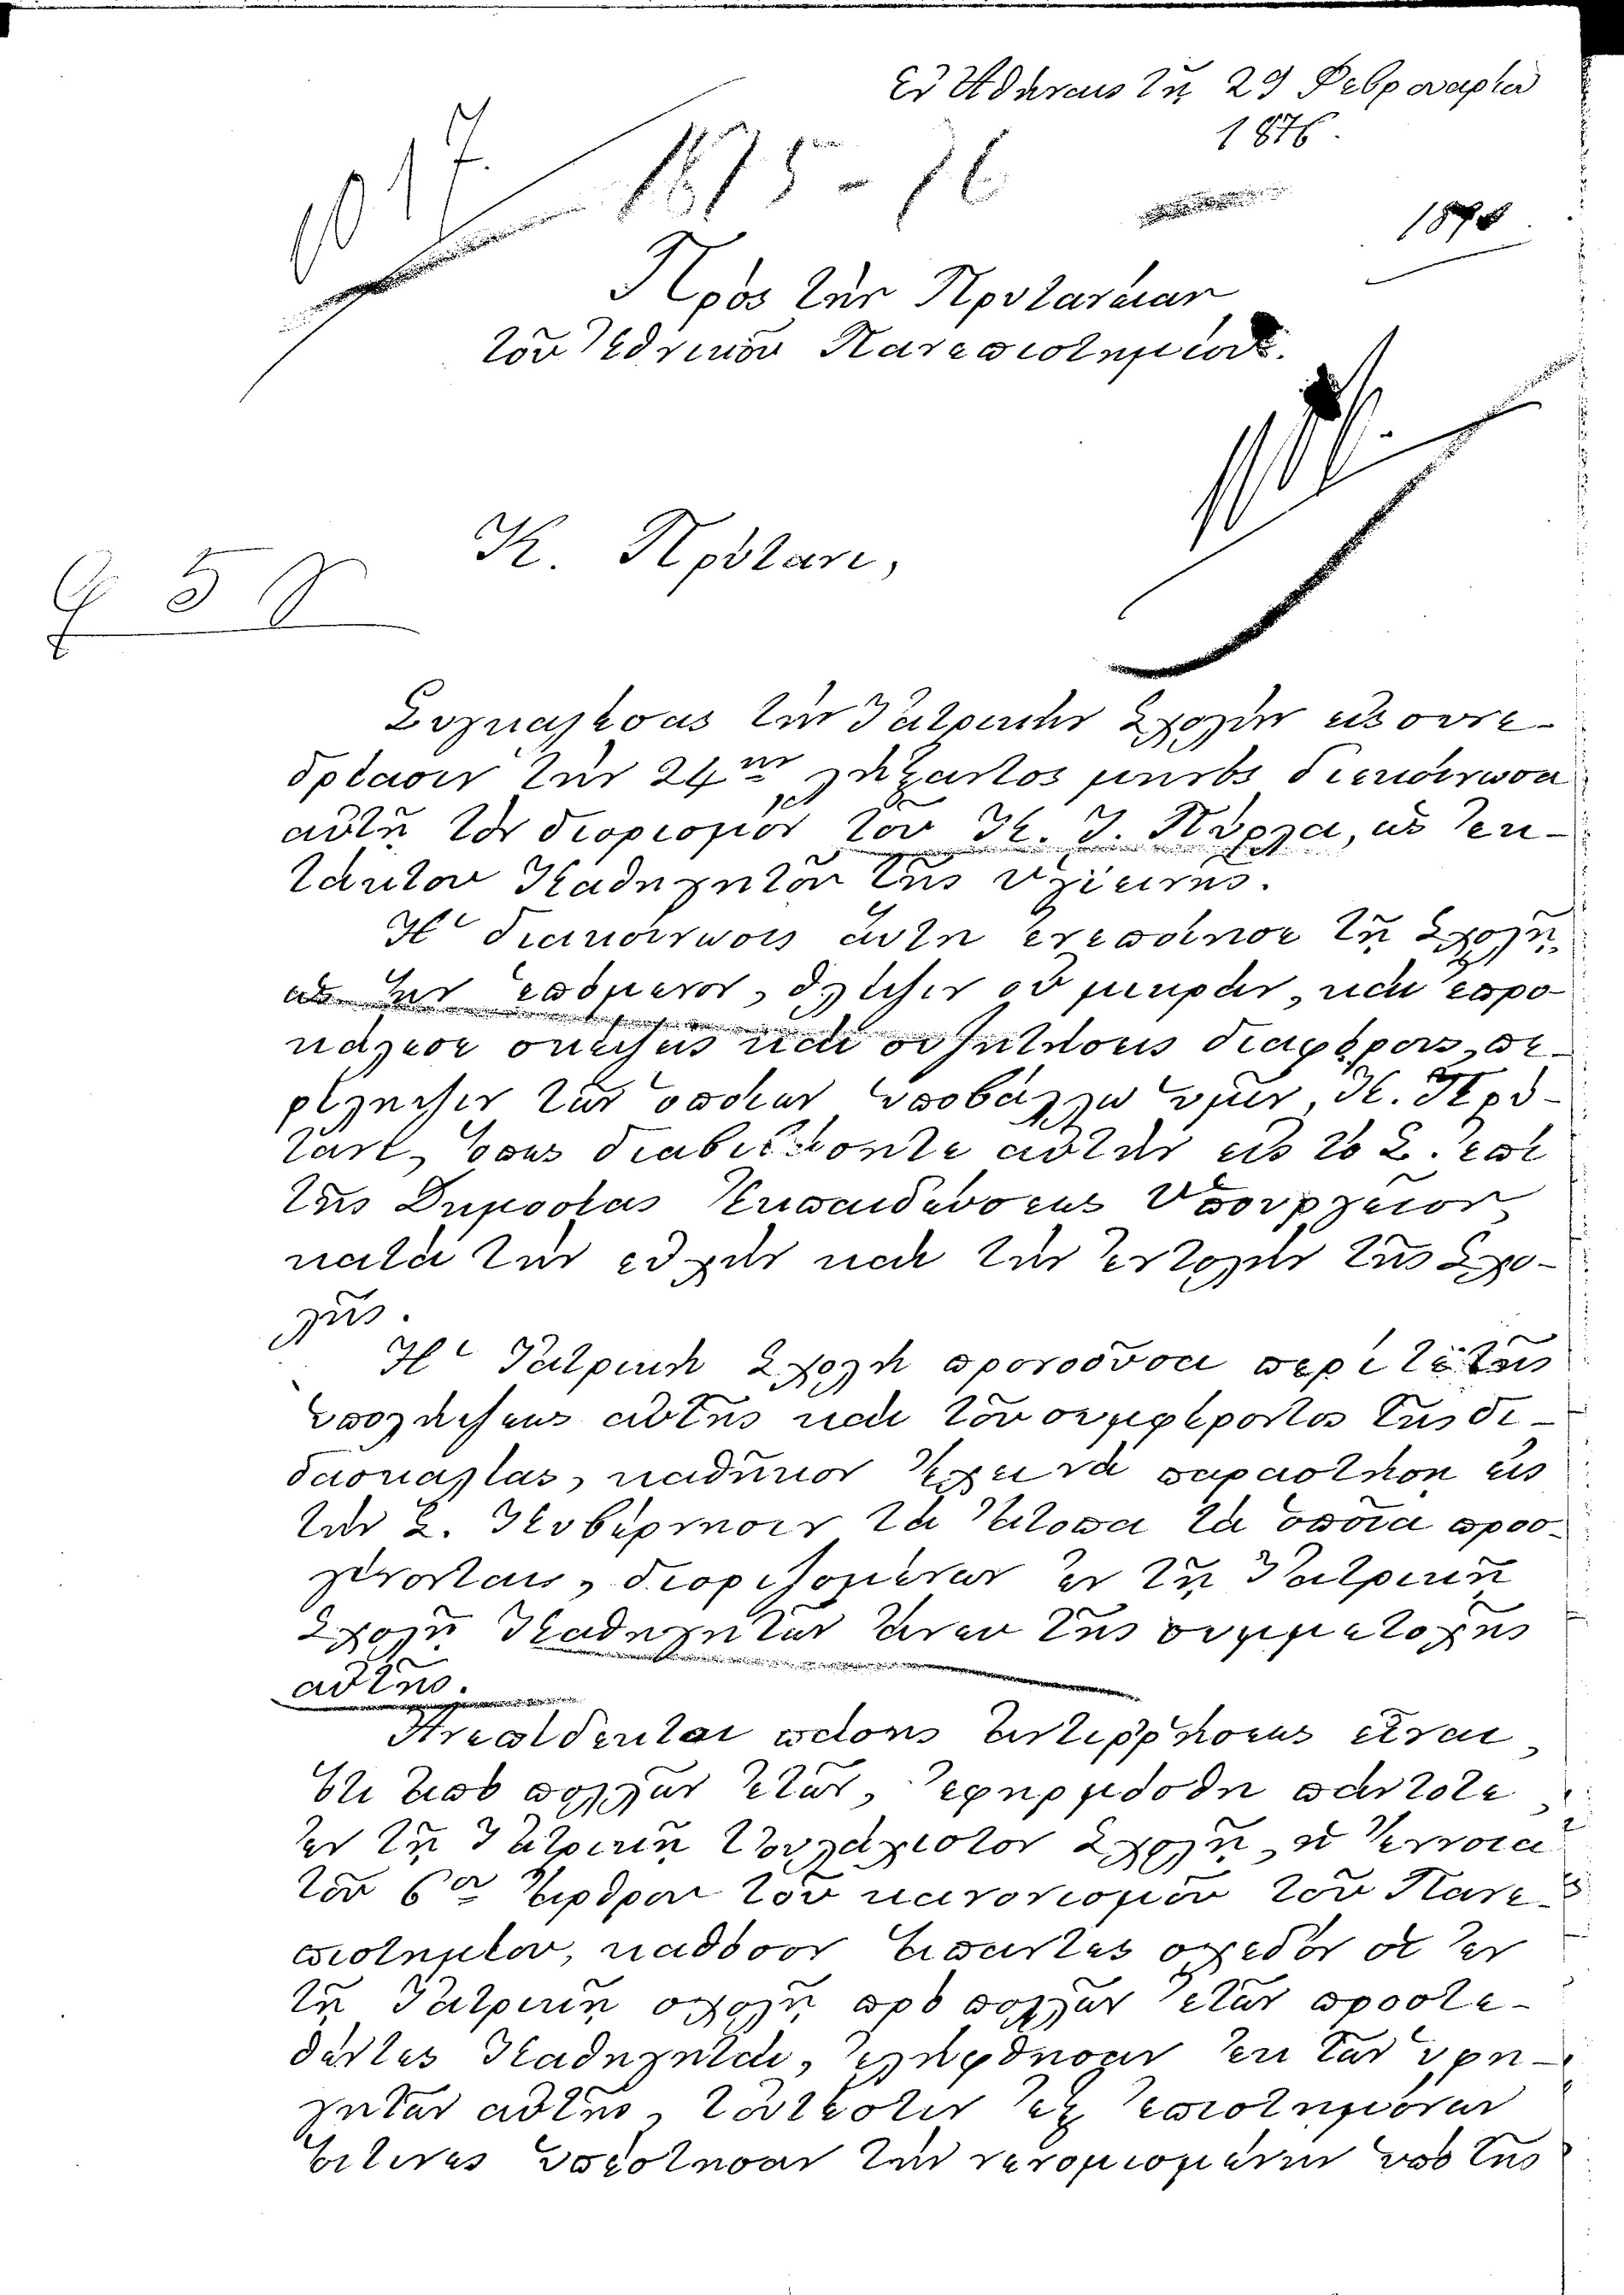 Ἐν Ἀθήναις τῇ 29 Φεβρουαρίου
1876.
1017. 1875-76
1876
Πρὸς τὴν Πρυτανείαν
τοῦ Ἐθνικοῦ Πανεπιστημίου.
Κ. Πρύτανι,
Συγκαλέσας τὴν Ἰατρικὴν Σχολὴν εἰς συνε-
δρίασιν τὴν 24ην λήξαντος μηνὸς διεκοίνωσα
αὐτῇ τὸν διορισμὸν τοῦ Κ. Ι. Πύρλα, ὡς ἐκ-
τάκτου Καθηγητοῦ τῆς ὑγιεινῆς.
Ἡ διακοίνωσις αὕτη ἐνεποίησε τῇ Σχολῇ,
ὡς ἦν ἑπόμενον, θλίψιν οὐ μικράν, καὶ ἐπρο-
κάλεσε σκέψεις καὶ συζητήσεις διαφόρους, πε-
ρίληψιν τῶν ὁποίων ὑποβάλλω ὑμῖν, Κ. Πρύ-
τανι, ὅπως διαβιβάσητε αὐτὴν εἰς τὸ Σ. ἐπὶ
τῆς Δημοσίας Ἐκπαιδεύσεως Ὑπουργεῖον,
κατὰ τὴν εὐχὴν καὶ τὴν ἐντολὴν τῆς Σχο-
λῆς.
Ἡ Ἰατρικὴ Σχολὴ προνοοῦσα περί τε τῆς
ὑπολήψεως αὐτῆς καὶ τοῦ συμφέροντος τῆς δι-
δασκαλίας, καθῆκον ἔχει νὰ παραστήσῃ εἰς
τὴν Σ. Κυβέρνησιν τὰ ἄτοπα τὰ ὁποῖα προσ-
γίνονται, διοριζομένων ἐν τῇ Ἰατρικῇ
Σχολῇ Καθηγητῶν ἄνευ τῆς συμμετοχῆς
αὐτῆς.
Ἀνεπίδεκτον πάσης ἀντιρρήσεως εἶναι,
ὅτι ἀπὸ πολλῶν ἐτῶν, ἐφηρμόσθη πάντοτε
ἐν τῇ Ἰατρικῇ τοὐλάχιστον Σχολῇ, ἡ ἔννοια
τοῦ 6ου ἄρθρου τοῦ κανονισμοῦ τοῦ Πανε-
πιστημίου, καθόσον ἅπαντες σχεδὸν οἱ ἐν
τῇ Ἰατρικῇ σχολῇ πρὸ πολλῶν ἐτῶν προστε-
θέντες Καθηγηταί, ἐλήφθησαν ἐκ τῶν ὑφη-
γητῶν αὐτῆς, τοὐτέστιν ἐξ ἐπιστημόνων
οἵτινες ὑπέστησαν τὴν νενομισμένην ὑπὸ τῆς